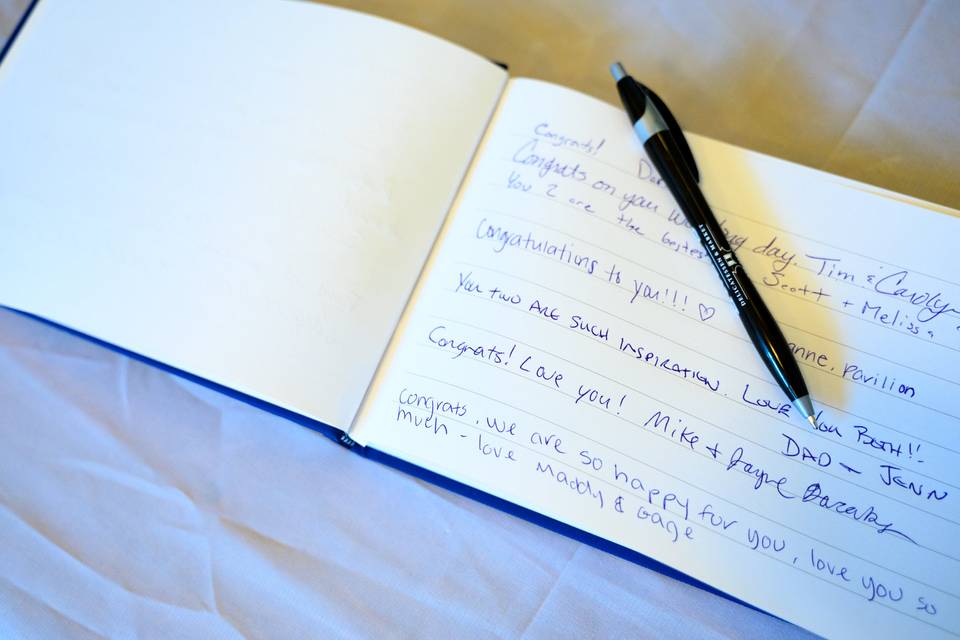 Congrats!
Congrats on your wedding day. Tim & Carolyn
You 2 are the bestest Scott + Melissa
Congratulations to you!!! ♡ anne, Pavilion
You two are such inspiration. Love you Both!!
DAD + JENN
Congrats! Love you! Mike + Jayne
Congrats, we are so happy for you, love you so
much - love Maddy & Gage
DELICATESSEN & MARKET